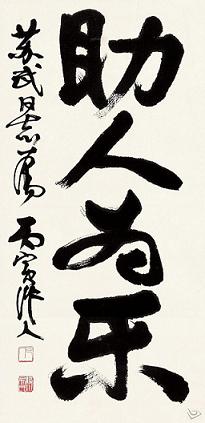 助人为乐
苏武同志属 丙寅 作人